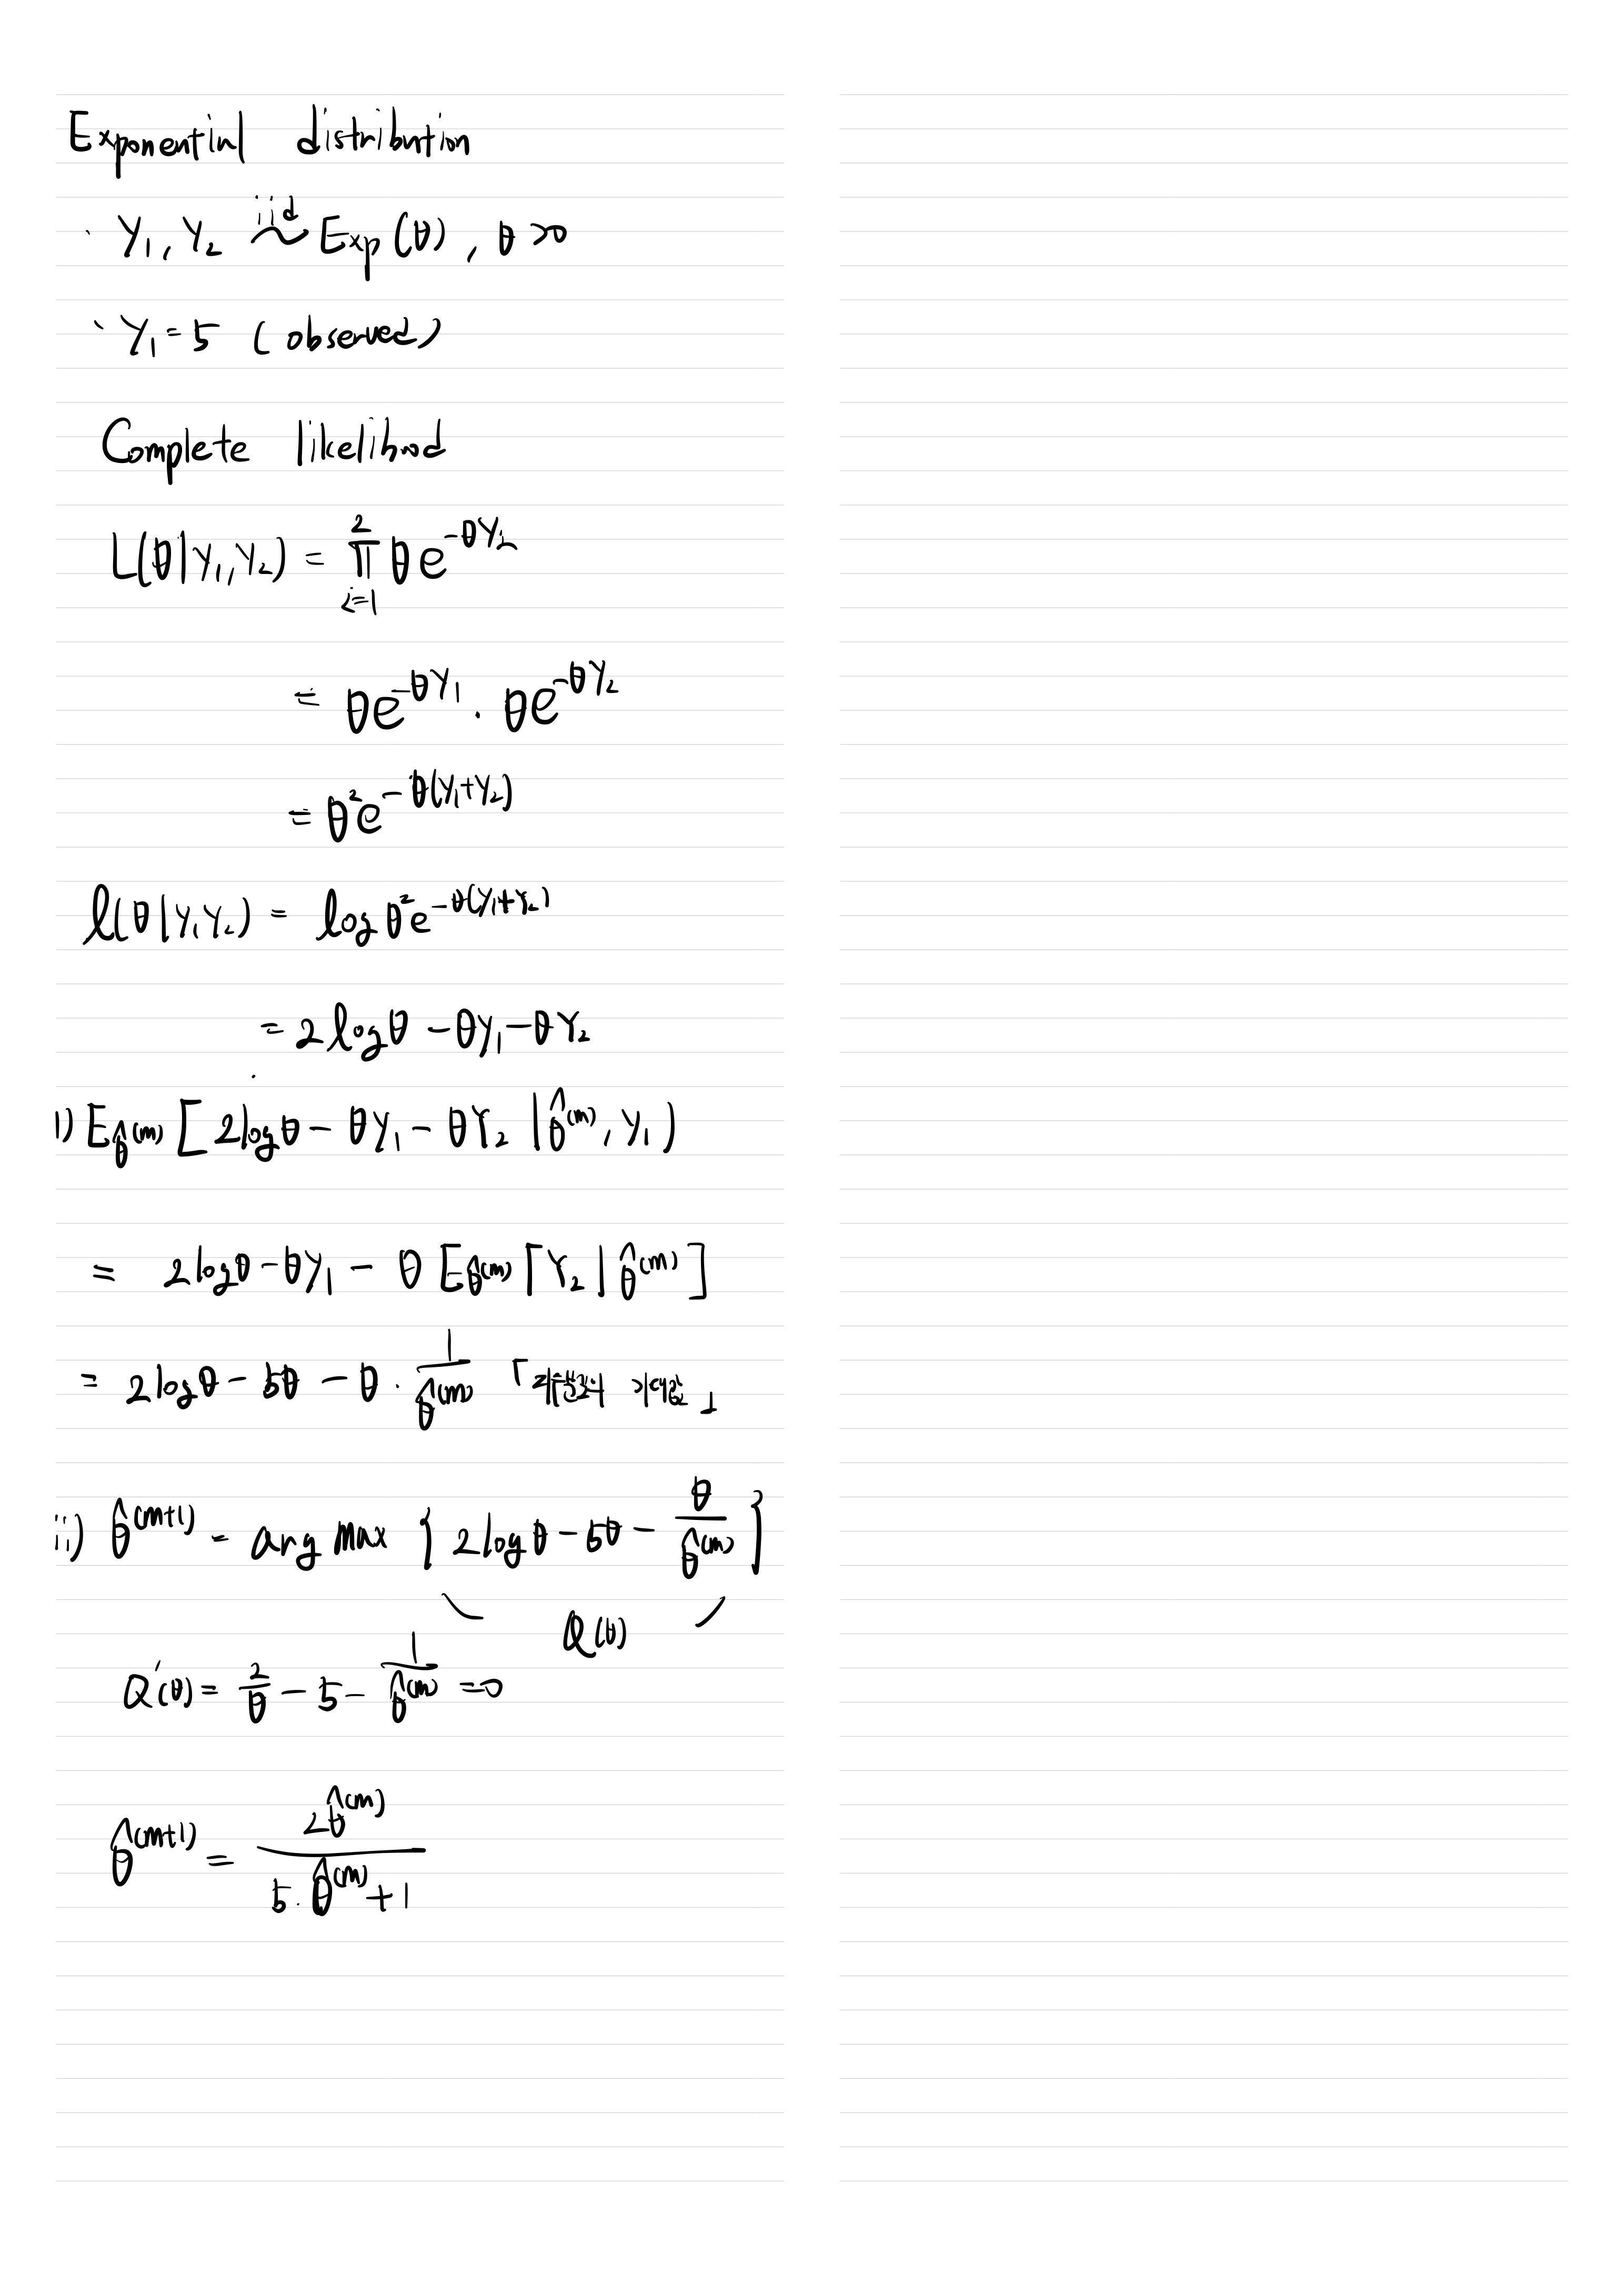 Exponential distribution
· Y₁, Y₂ ~ⁱⁱᵈ Exp(θ), θ>0
· Y₁=5 (observed)
Complete likelihood
L(θ|Y₁,Y₂) = ∏_{i=1}^{2} θe^{-θYᵢ}
= θe^{-θY₁} · θe^{-θY₂}
= θ²e^{-θ(Y₁+Y₂)}
ℓ(θ|Y₁Y₂) = log θ²e^{-θ(Y₁+Y₂)}
= 2logθ - θy₁ - θY₂
i) E_{θ̂^{(m)}}[2logθ - θy₁ - θY₂ | θ̂^{(m)}, y₁)
= 2logθ - θy₁ - θ E_{θ̂^{(m)}}[Y₂ | θ̂^{(m)}]
= 2logθ - 5θ - θ · 1/θ̂^{(m)}
ii) θ̂^{(m+1)} = arg max { 2logθ - 5θ - θ/θ̂^{(m)} }
Q(θ)
Q'(θ) = 2/θ - 5 - 1/θ̂^{(m)} = 0
θ̂^{(m+1)} = 2θ̂^{(m)} / (5·θ̂^{(m)} + 1)